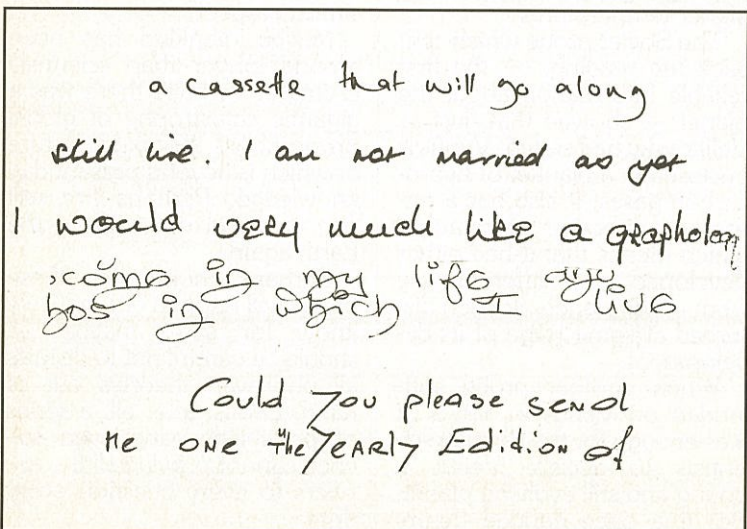 a cassette that will go along
still live. I am not married as yet
I would very much like a grapholog
come in my life
has in which I live
Could you please send
Me one the yearly Edition of